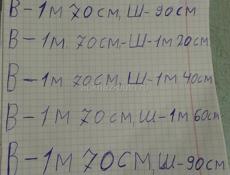 В-1м 70см, Ш-90см
В-1м 70см-Ш-1м 20см
В-1м 70см, Ш-1м 40см
В-1м 70см, Ш-1м 60см
В-1м 70см, Ш-90см